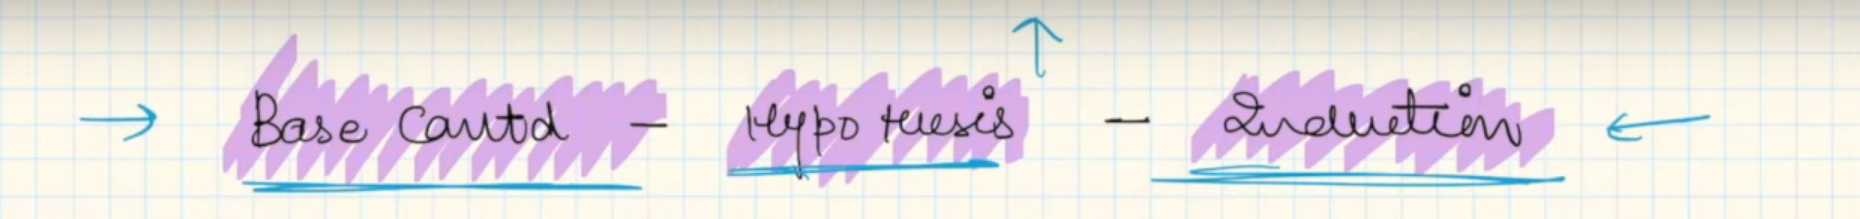 Base Cautd - Hypothesis - Induction